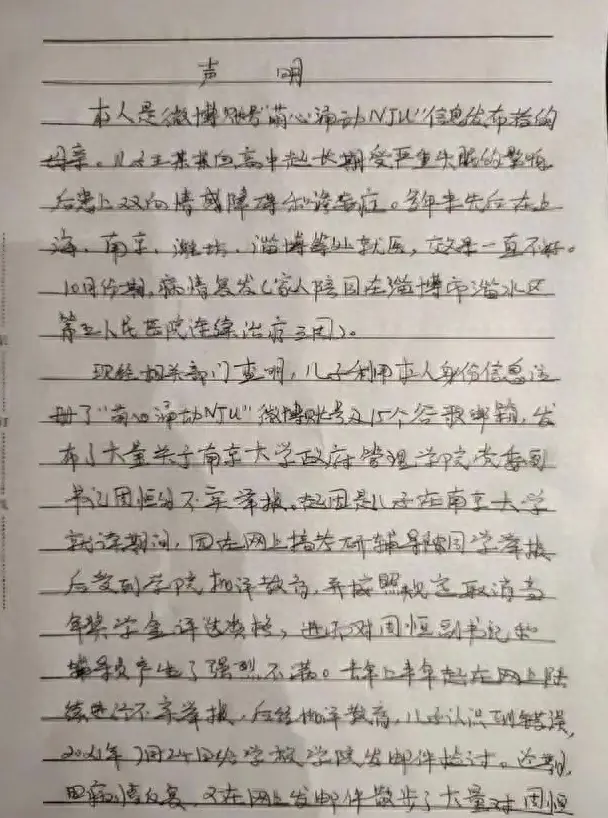 声 明
本人是微博账号"萌心涌动NJU"信息发布者的
母亲。儿子王某某自高中起长期受严重失眠的影响
后患上双向情感障碍和躁狂症。多年来先后在上
海、南京、潍坊、淄博等处就医，效果一直不好。
10月份期，病情复发（家人陪同在淄博市淄水区
第五人民医院连续治疗三周）。
现经相关部门查明，儿子利用本人身份信息注
册了"萌心涌动NJU"微博账号及15个谷歌邮箱，发
布了大量关于南京大学政府管理学院党委副
书记周恒的不实举报。起因是儿子在南京大学
就读期间，因在网上搞考研辅导被同学举报
后受到学院批评教育，并按照规定取消当
年奖学金评选资格，进而对周恒副书记和
辅导员产生了强烈不满。去年上半年起在网上陆
续进行不实举报，后经批评教育，儿子认识到错误，
2021年7月24日给学校学院发邮件检讨。近期，
因病情反复，又在网上发邮件散步了大量对周恒